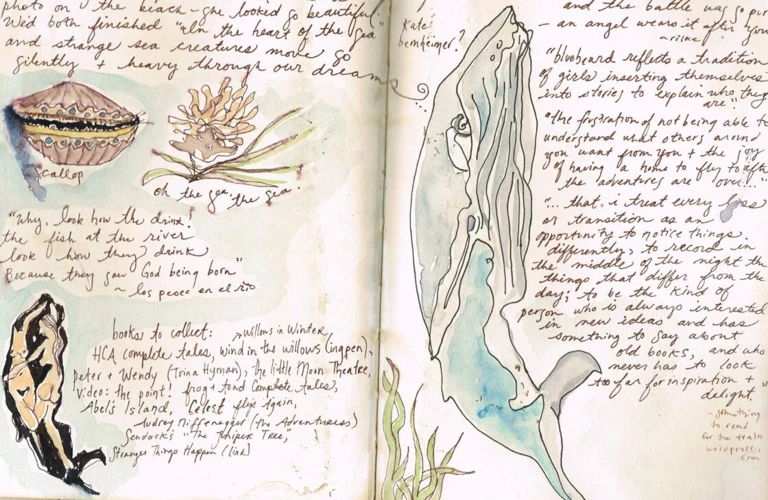 photo on the beach - she looked so beautiful.
We'd both finished "In the heart of the Sea"
and strange sea creatures move so
silently + heavy through our dreams
scallop
oh the sea, the sea.
"Why, look how they drink.
the fish at the river
look how they drink
Because they saw God being born"
~ los peces en el rio
books to collect: willows in Winter,
HCA complete tales, wind in the willows (ingpen),
Peter + Wendy (Trina Hyman), the little Moon Theatre,
Video: the point! frog + toad Complete tales,
Abel's Island, Celeste flys Again,
Audrey Niffenegger (the Adventuress)
Sendack's "The Juniper Tree,
Stranger Things Happen (link)
Kate
bernheimer?
and the battle was so
- an angel wears it after you
"bluebeard reflects a tradition
of girls inserting themselves
into stories to explain who they
are"
"the frustration of not being able to
understand what others around
you want from you + the joy
of having a home to fly to after
the adventures are over..."
"... that, i treat every loss
or transition as an
opportunity to notice things
differently, to record in
the middle of the night the
things that differ from the
day; to be the kind of
person who is always interested
in new ideas and has
something to say about
old books, and who
never has to look
too far for inspiration +
delight."
- something
to read
for the train
wordpress.
com